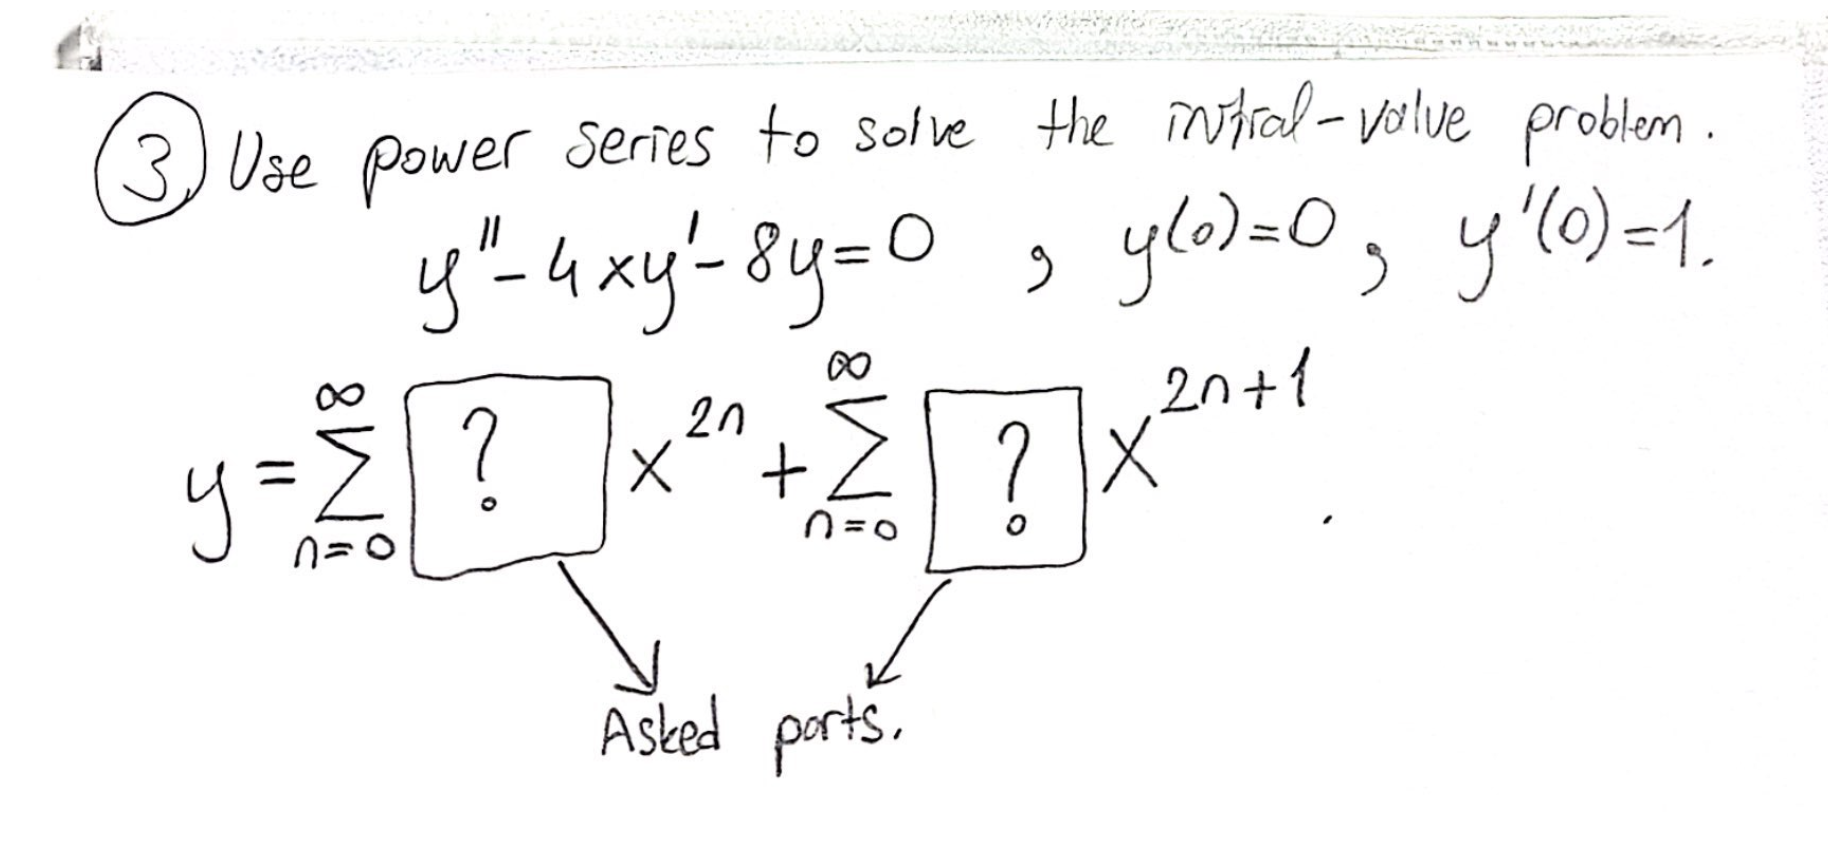 3) Use power series to solve the initial-value problem.
y''-4xy'-8y=0 , y(0)=0, y'(0)=1.
y = ∞∑n=0 ? x^2n + ∞∑n=0 ? x^2n+1 .
Asked parts.